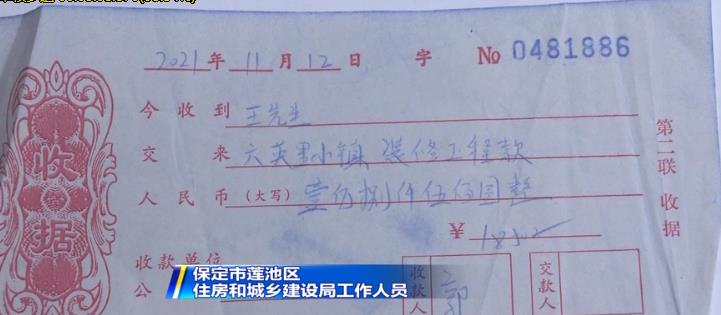 2021年11月12日 字 № 0481886
今收到 王先生
交来 六英里小镇 装修工程款
人民币(大写) 壹仟捌仟伍佰圆整
¥ 18500
收款单位
公
收款人 郭
交款人
收据
第二联 收据
保定市莲池区
住房和城乡建设局工作人员